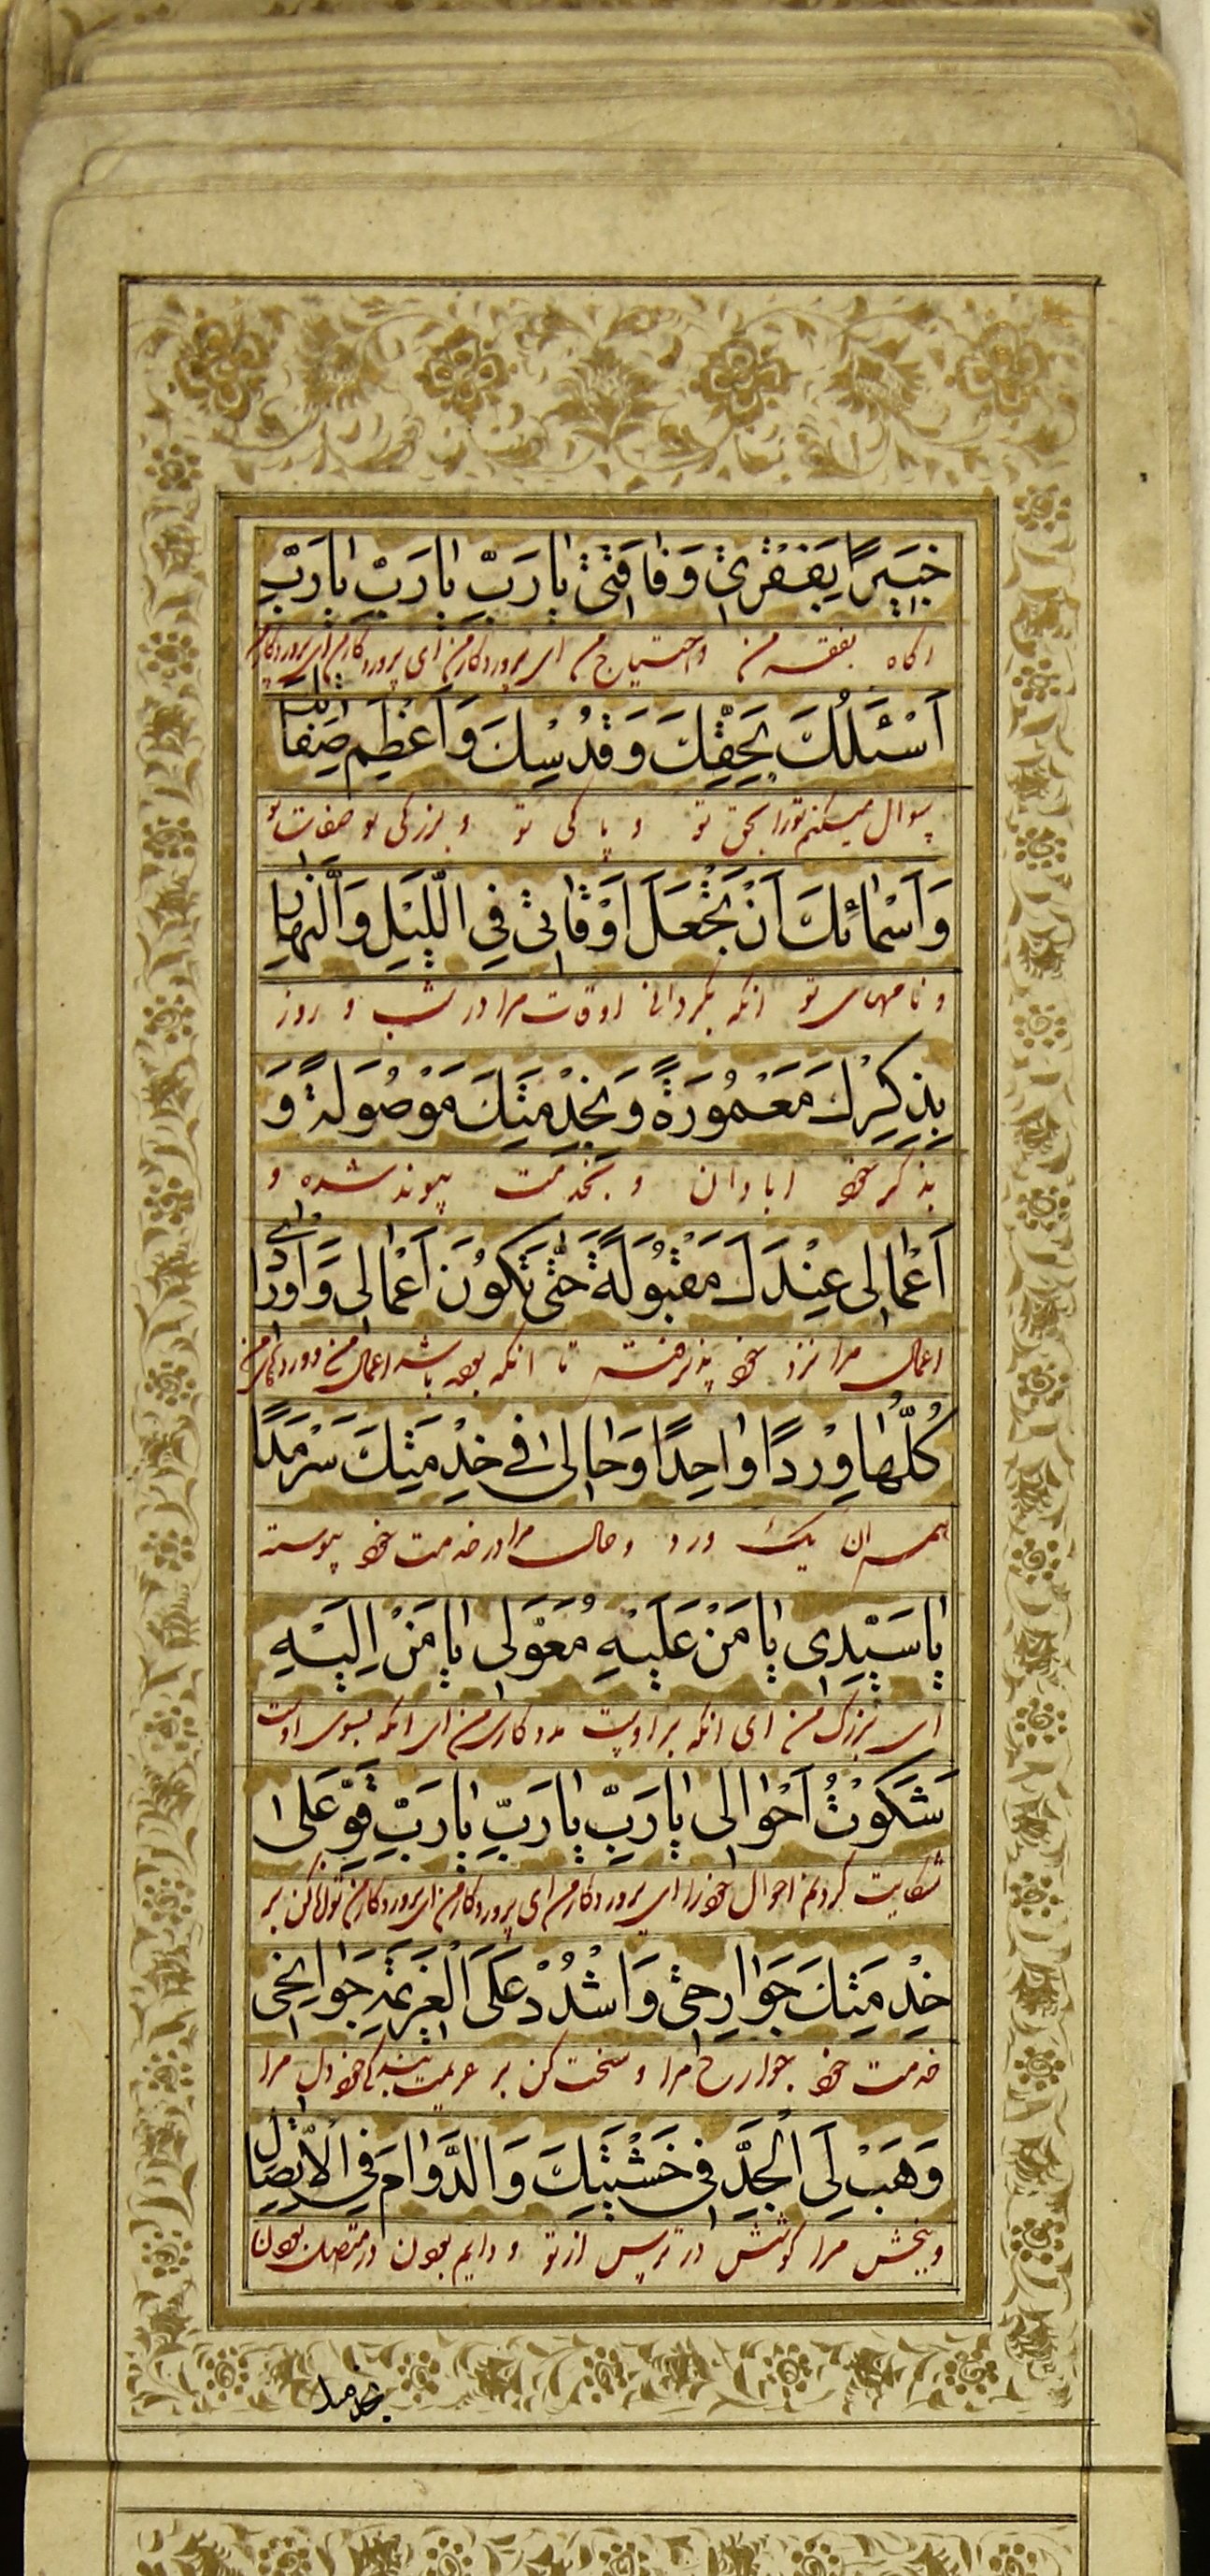 خَبيرًا بِفَقْرى وَفاقَتى يا رَبِّ يا رَبِّ يا رَبِّ
اگاه بفقر من و احتیاج من ای پروردگار من ای پروردگار من ای پروردگار من
اَسْئَلُكَ بِحَقِّكَ وَقُدْسِكَ وَاَعْظَمِ صِفاتِكَ
سوال میکنم تو را بحق تو و پاکی تو و بزرکی تو صفات تو
وَاَسْمائِكَ اَنْ تَجْعَلَ اَوْقاتى فِي اللَّيْلِ وَالنَّهارِ
و نامهای تو انکه بگردانی اوقات مرا در شب و روز
بِذِكْرِكَ مَعْمُورَةً وَبِخِدْمَتِكَ مَوْصُولَةً وَ
بذکر خود ابادان و بخدمت پیوند شده و
اَعْمالى عِنْدَكَ مَقْبُولَةً حَتّى تَكُونَ اَعْمالى وَاَوْرادى
اعمال مرا نزد خود پذیرفته تا انکه بوده باشد اعمال من و وردهای من
كُلُّها وِرْدًا واحِدًا وَحالى فى خِدْمَتِكَ سَرْمَدًا
همه ان یک ورد و حال مرا در خدمت خود پیوسته
يا سَيِّدى يا مَنْ عَلَيْهِ مُعَوَّلى يا مَنْ اِلَيْهِ
ای بزرک من ای انکه بر اوست مددکاری من ای انکه بسوی اوست
شَكَوْتُ اَحْوالى يا رَبِّ يا رَبِّ يا رَبِّ قَوِّ عَلى
شکایت کردنم احوال خود را ای پروردگار من ای پروردگار من ای پروردگار من توانا کن بر
خِدْمَتِكَ جَوارِحى وَاشْدُدْ عَلَى الْعَزيمَةِ جَوانِحى
خدمت خود جوارح مرا و سخت کن بر عزیمت بندکی خود دل مرا
وَهَبْ لِىَ الْجِدَّ فى خَشْيَتِكَ وَالدَّوامَ فِى الْاِتِّصالِ
و ببخش مرا کوشش در ترس از تو و دایم بودن در متصل بودن
بخدمتك